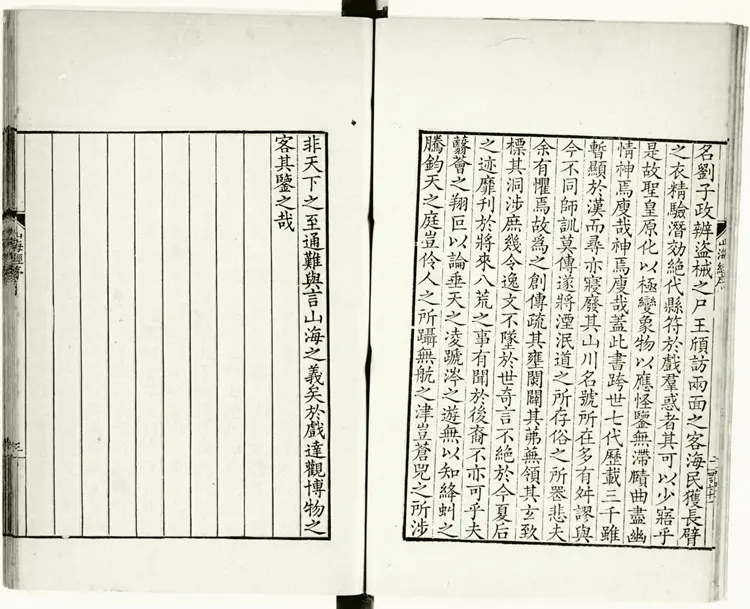 名劉子政辨盜械之尸王頎訪兩面之客海民獲長臂
之衣精驗潛効絶代縣符於戲羣惑者其可以少寤乎
是故聖皇原化以極變象物以應怪鑒無滯賾曲盡幽
情神焉廋哉神焉廋哉蓋此書跨世七代歷載三千雖
暫顯於漢而尋亦寢廢其山川名號所在多有舛謬與
今不同師訓莫傳遂將湮泯道之所存俗之所喪悲夫
余有懼焉故爲之創傳疏其壅閡闢其茀蕪領其玄致
標其洞涉庶幾令逸文不墜於世奇言不絶於今夏后
之迹靡刊於將來八荒之事有聞於後裔不亦可乎夫
蘙薈之翔叵以論垂天之凌蹏涔之遊無以知絳虯之
騰鈞天之庭豈伶人之所躡無航之津豈蒼兕之所涉
非天下之至通難與言山海之義矣於戲達觀博物之
客其鑒之哉
山海經序
二
山海經序
三